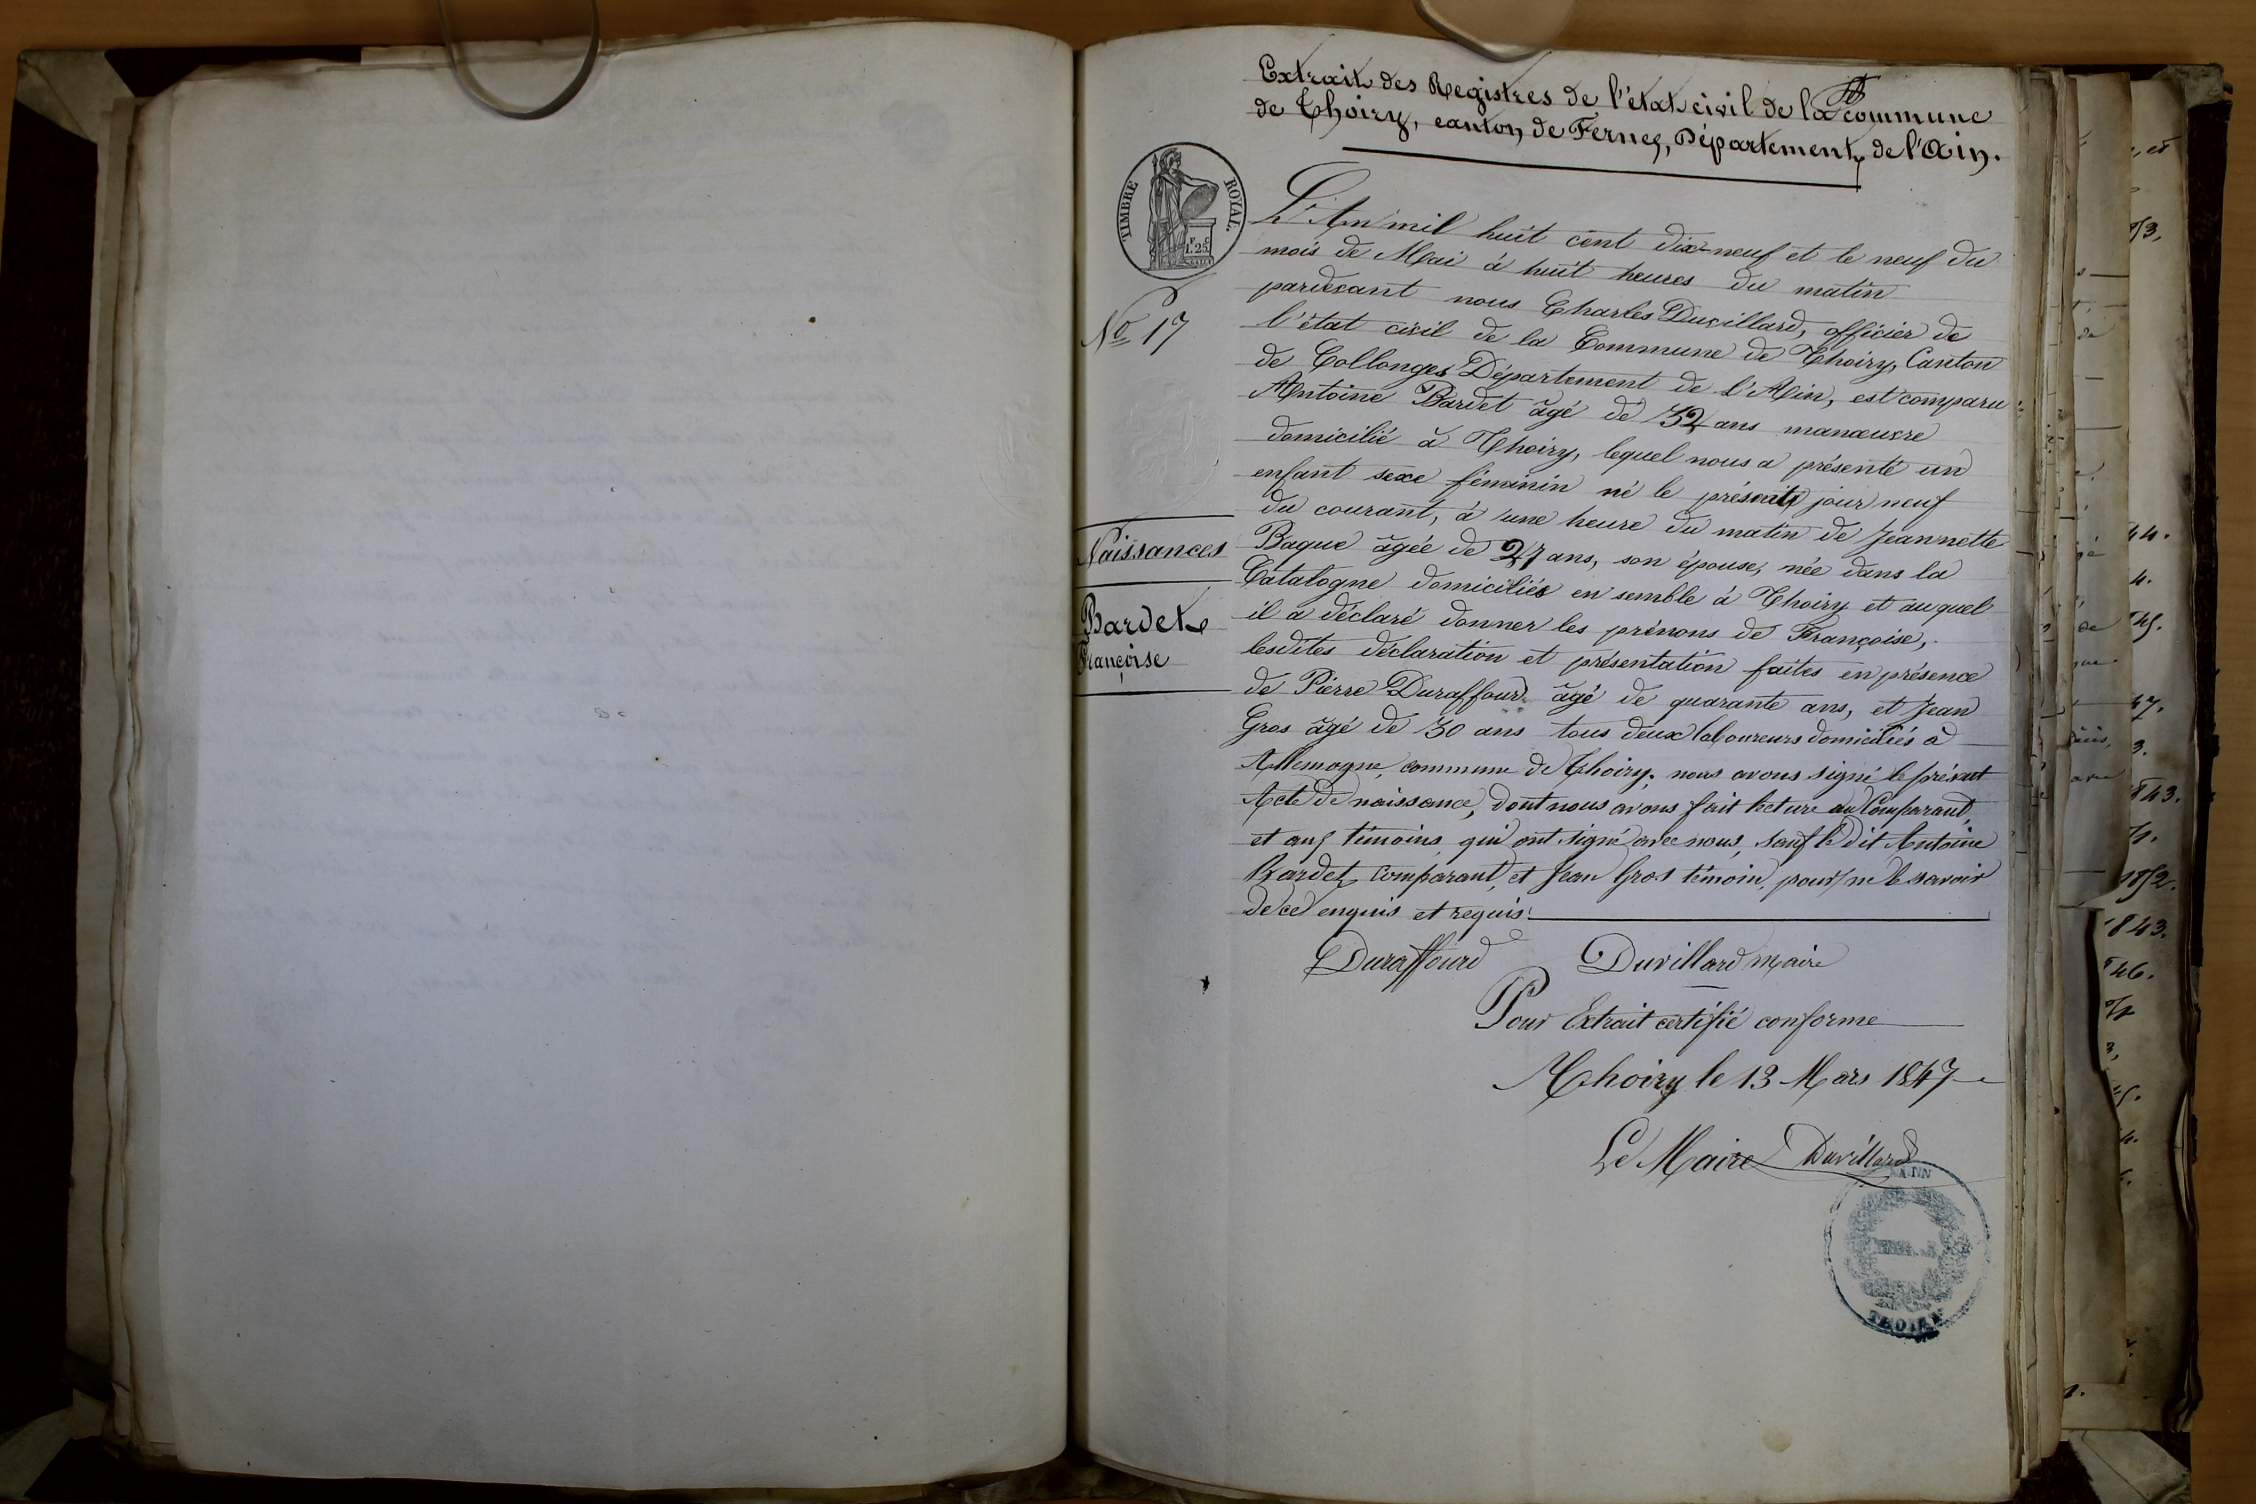 Extrait des Registres de l'état civil de la commune
de Thoiry, canton de Ferney, Département de l'Ain.
TIMBRE ROYAL.
F. C.
1.25
L'An mil huit cent dix-neuf et le neuf du
mois de Mai à huit heures du matin
pardevant nous Charles Duvillard, officier de
l'état civil de la Commune de Thoiry, Canton
de Collonges Département de l'Ain, est comparu
Antoine Bardet âgé de 32 ans manœuvre
domicilié à Thoiry, lequel nous a présenté un
enfant sexe féminin né le présent jour neuf
du courant, à une heure du matin de Jeannette
Baque âgée de 27 ans, son épouse, née dans la
Catalogne domiciliés en semble à Thoiry et auquel
il a déclaré donner les prénons de Françoise,
lesdites déclaration et présentation faites en présence
de Pierre Duraffourd âgé de quarante ans, et Jean
Gros âgé de 30 ans tous deux laboureurs domiciliés à
Allemogne, commune de Thoiry. nous avons signé le présent
Acte de naissance, dont nous avons fait lecture au Comparant,
et aux témoins qui ont signé avec nous, sauf le dit Antoine
Bardet, comparant, et Jean Gros témoin, pour ne le savoir
de ce enquis et requis.
No 17
Naissances
Bardet
Françoise
Duraffourd Duvillard maire
Pour Extrait certifié conforme
Thoiry le 13 Mars 1847
Le Maire Duvillard
AIN
THOIRY